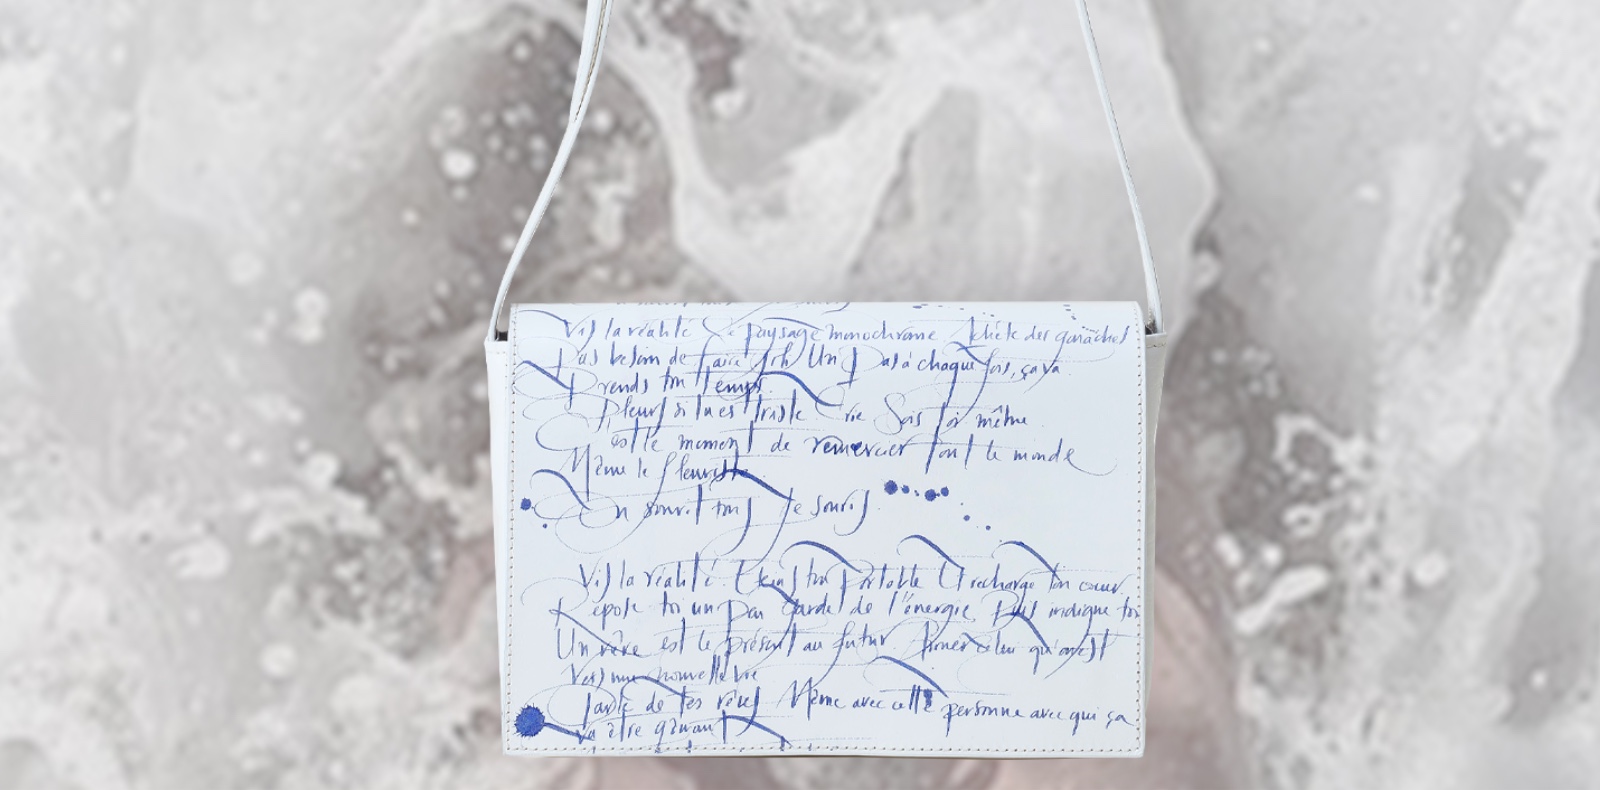 Vis la réalité Le paysage monochrome Achète des gouaches
Pas besoin de faire 
Un pas à chaque fois, ça va
Prends ton temps
Pleurs si tu es triste rie Sois toi même
C'est le moment de remercier tout le monde
Même le fleuriste
On sourit tous Je souris
Vis la réalité. Eteins ton portable Et recharge ton cœur
Repose toi un peu Garde de l'énergie Puis indigne toi
Un rêve est le présent au futur. Aimer celui qu'on est
Vers une nouvelle vie
Parle de tes rêves Même avec cette personne avec qui ça
va être gênant